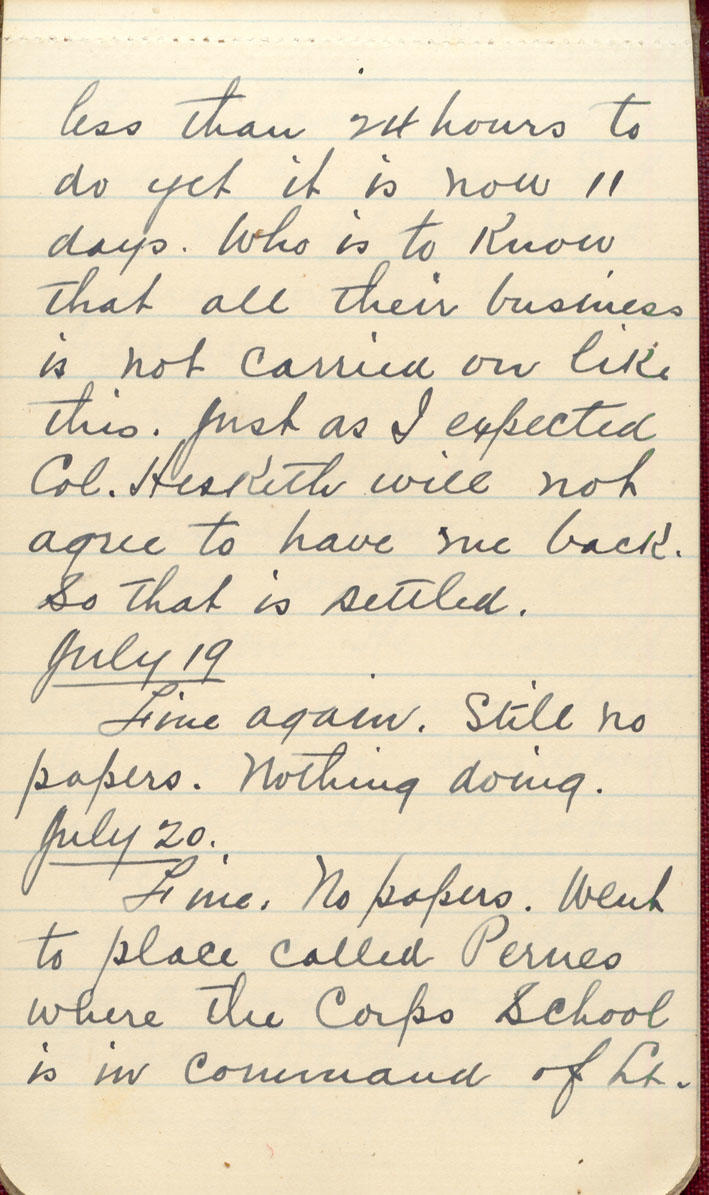 less than 24 hours to
do yet it is now 11
days. Who is to Know
that all their business
is not carried on like
this. Just as I expected
Col. Hesketh will not
agree to have me back.
So that is settled.
July 19
Fine again. Still no
papers. Nothing doing.
July 20.
Fine. No papers. Went
to place called Pernes
where the Corps School
is in command of Lt.